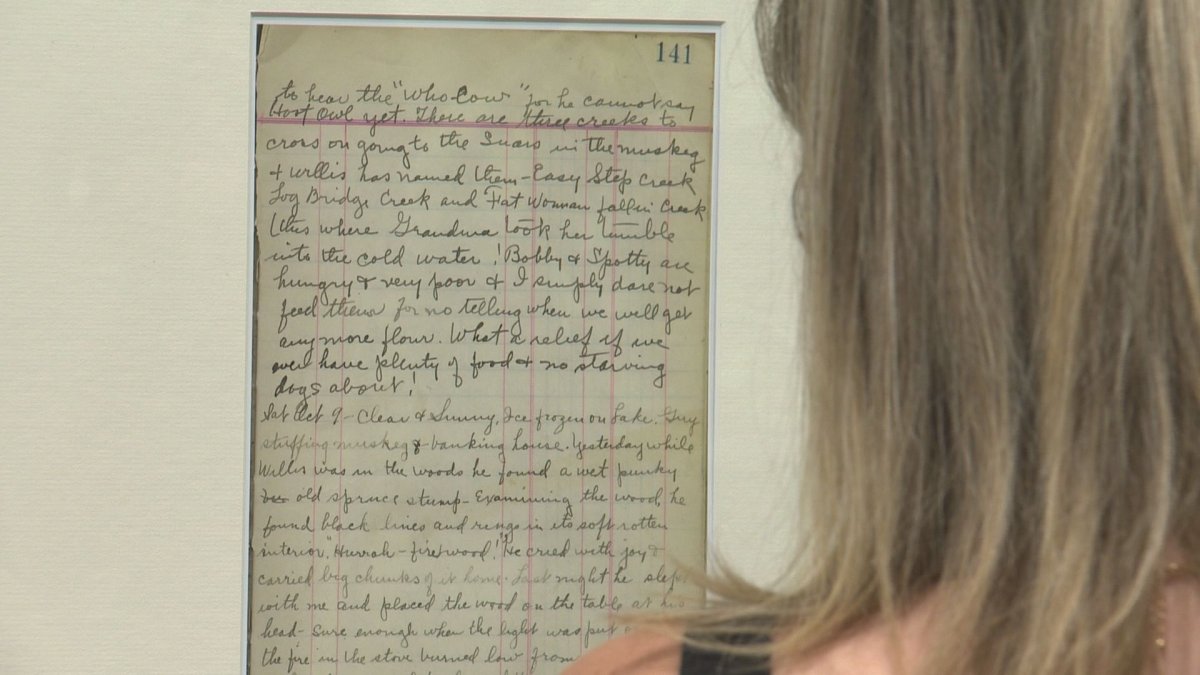 141
to hear the "Who-Cow" for he cannot say
Hoot Owl yet. There are three creeks to
cross on going to the Snars in the muskeg
& Willis has named them - Easy Step Creek
Log Bridge Creek and Fat Woman fall in Creek
(this where Grandma took her tumble
into the cold water! Bobby & Spotty are
hungry & very poor & I simply dare not
feed them for no telling when we will get
any more flour. What a relief if we
ever have plenty of food & no starving
dogs about!
Sat Oct 9 - Clear & Sunny, Ice frozen on Lake. Guy
stuffing muskeg & banking house. Yesterday while
Willis was in the woods he found a wet punky
old spruce stump - Examining the wood, he
found black lines and rings in its soft rotten
interior, "Hurrah - firewood!" He cried with joy &
carried big chunks of it home. Last night he slept
with me and placed the wood on the table at his
head - Sure enough when the light was put
the fire in the stove burned low from